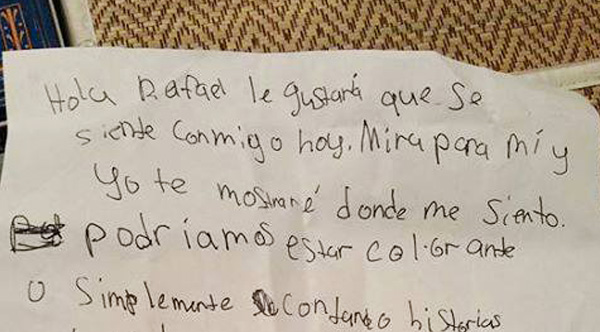 Hola Rafael le gustará que se
siente conmigo hoy. Mira para mí y
Yo te mostraré donde me siento.
podríamos estar colorante
O simplemente contando historias